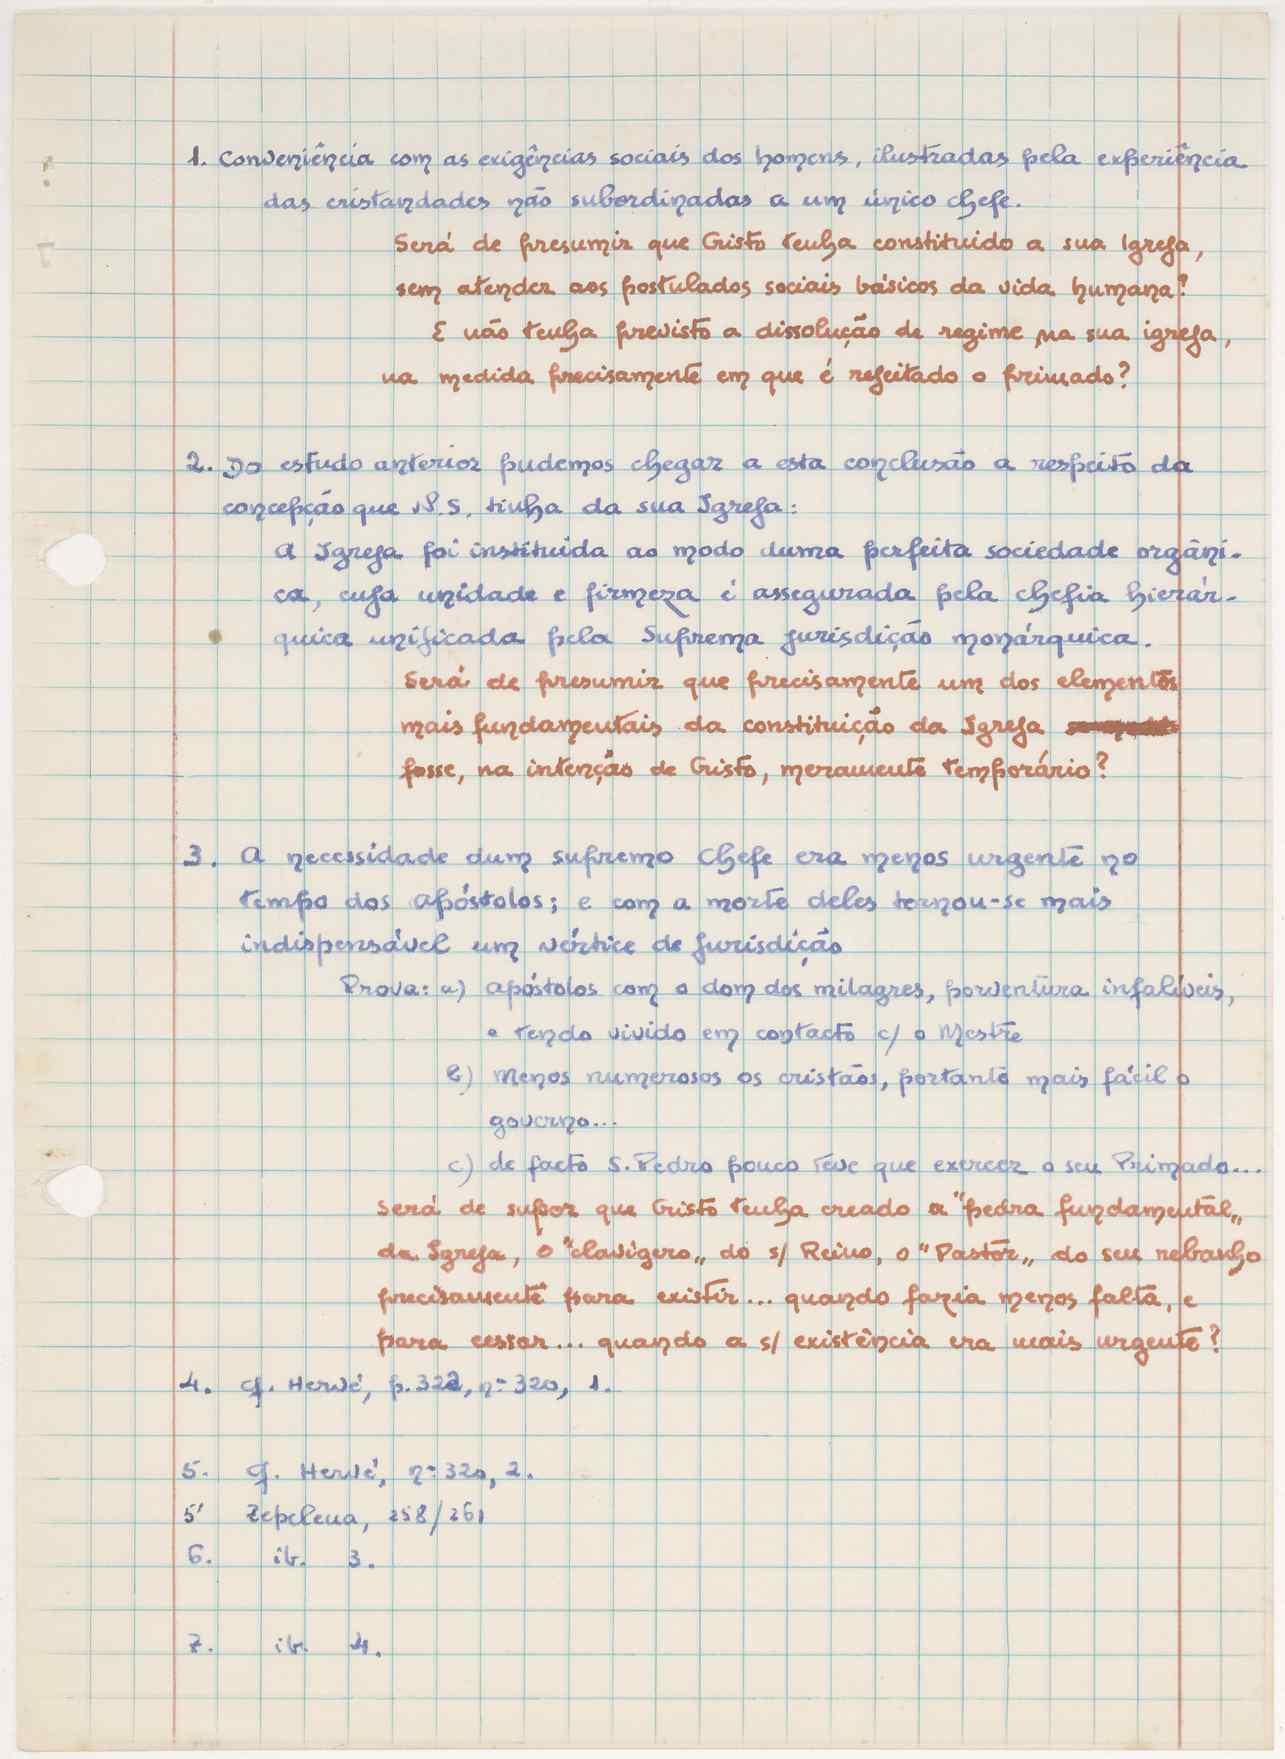 1. Conveniência com as exigências sociais dos homens, ilustradas pela experiência
das cristandades não subordinadas a um único chefe.
Será de presumir que Cristo tenha constituido a sua Igreja,
sem atender aos postulados sociais básicos da vida humana?
E não tenha previsto a dissolução de regime na sua igreja,
na medida precisamente em que é rejeitado o primado?
2. Do estudo anterior pudemos chegar a esta conclusão a respeito da
concepção que N.S. tinha da sua Igreja:
A Igreja foi instituida ao modo duma perfeita sociedade orgâni-
ca, cuja unidade e firmeza é assegurada pela chefia hierár-
quica unificada pela Suprema jurisdição monárquica.
Será de presumir que precisamente um dos elementos
mais fundamentais da constituição da Igreja
fosse, na intenção de Cristo, meramente temporário?
3. A necessidade dum supremo chefe era menos urgente no
tempo dos apóstolos; e com a morte deles tornou-se mais
indispensável um vértice de jurisdição
Prova: a) apóstolos com o dom dos milagres, porventura infalíveis,
e tendo vivido em contacto c/ o Mestre
b) menos numerosos os cristãos, portanto mais fácil o
governo...
c) de facto S. Pedro pouco teve que exercer o seu Primado...
Será de supor que Cristo tenha creado a "pedra fundamental„
da Igreja, o "clavígero„ do s/ Reino, o "Pastor„ do seu rebanho
precisamente para existir... quando fazia menos falta, e
para cessar... quando a s/ existência era mais urgente?
4. cf. Hervé, p. 322, nº 320, 1.
5. cf. Hervé, nº 320, 2.
5' Zapelena, 258/261
6. ib. 3.
7. ib. 4.